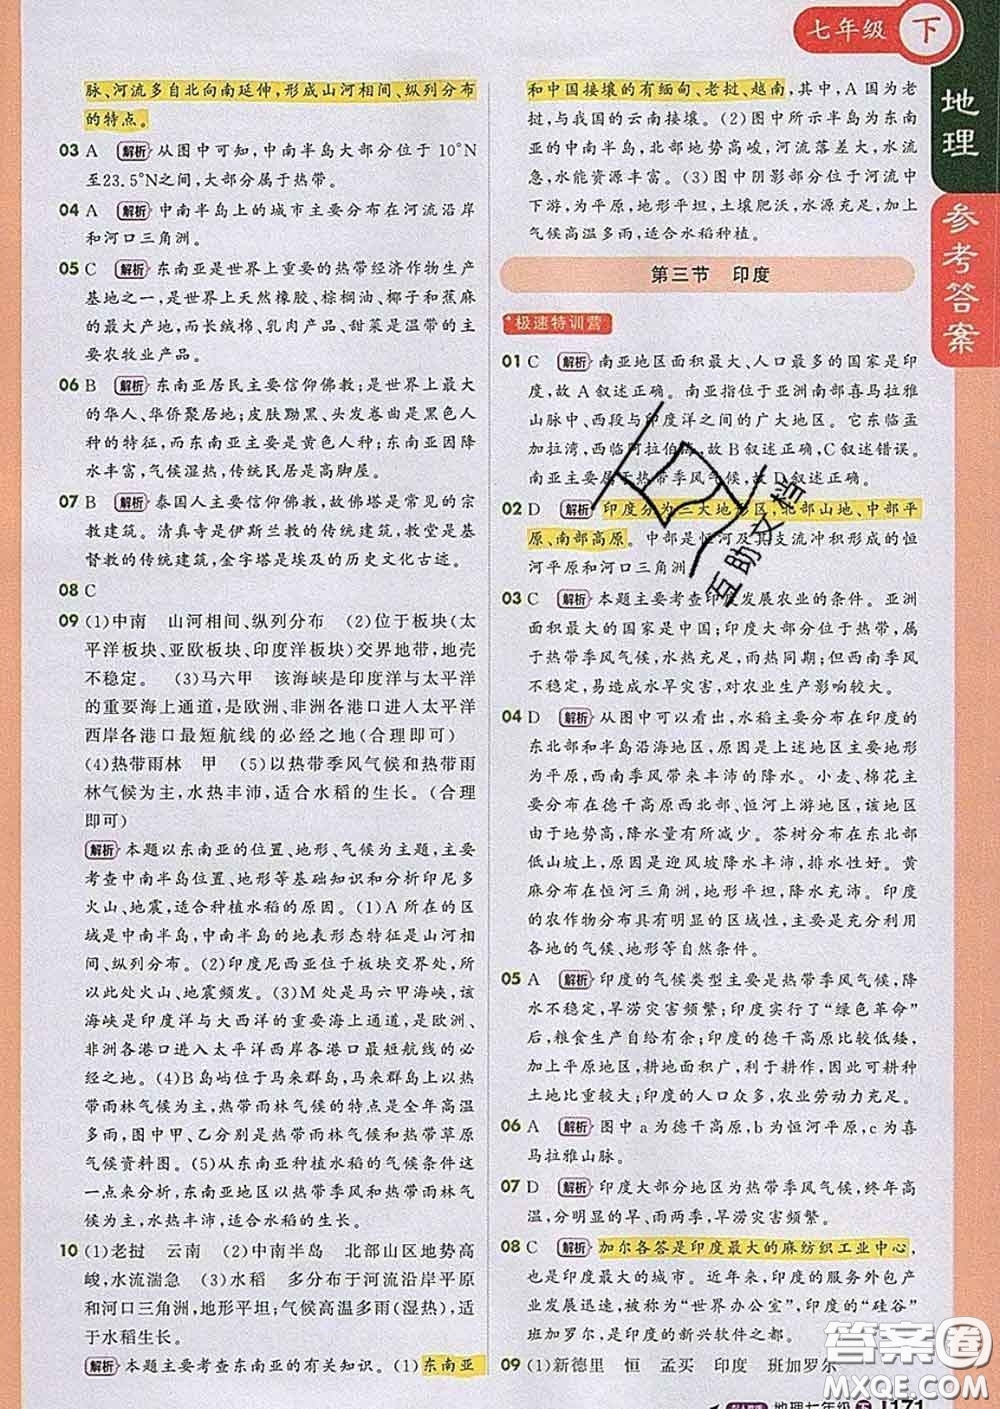 七年级 下
地理
参考答案
脉、河流多自北向南延伸,形成山河相间、纵列分布
的特点。
03 A 解析 从图中可知,中南半岛大部分位于10°N
至23.5°N之间,大部分属于热带。
04 A 解析 中南半岛上的城市主要分布在河流沿岸
和河口三角洲。
05 C 解析 东南亚是世界上重要的热带经济作物生产
基地之一,是世界上天然橡胶、棕榈油、椰子和蕉麻
的最大产地,而长绒棉、乳肉产品、甜菜是温带的主
要农牧业产品。
06 B 解析 东南亚居民主要信仰佛教;此地是世界上
的华人、华侨聚居地;皮肤黝黑、头发卷曲是黑色人
种的特征,而东南亚主要是黄色人种;东南亚因降
水丰富,气候湿热,传统民居是高脚屋。
07 B 解析 泰国人主要信仰佛教,故佛塔是常见的宗
教建筑。清真寺是伊斯兰教的传统建筑,教堂是基
督教的传统建筑,金字塔是埃及的历史文化古迹。
08 C
09 (1)中南 山河相间、纵列分布 (2)位于板块(太
平洋板块、亚欧板块、印度洋板块)交界地带,地壳
不稳定。 (3)马六甲 该海峡是印度洋与太平洋
的重要海上通道,是欧洲、非洲各港口进入太平洋
西岸各港口最短航线的必经之地(合理即可)
(4)热带雨林 甲 (5)以热带季风气候和热带雨
林气候为主,水热丰沛,适合水稻的生长。(合理
即可)
解析 本题以东南亚的位置、地形、气候为主题,主要
考查中南半岛位置、地形等基础知识和分析印尼多
火山、地震,适合种植水稻的原因。(1)A所在的区
域是中南半岛,中南半岛的地表形态特征是山河相
间、纵列分布。(2)印度尼西亚位于板块交界处,所
以此处火山、地震频发。(3)M处是马六甲海峡,该
海峡是印度洋与大西洋的重要海上通道,是欧洲、
非洲各港口进入太平洋西岸各港口最短航线的必
经之地。(4)B岛屿位于马来群岛,马来群岛以热
带雨林气候为主,热带雨林气候的特点是全年高温
多雨,图中甲、乙分别是热带雨林气候和热带草原
气候资料图。(5)从东南亚种植水稻的气候条件这
一点来分析,东南亚地区以热带季风和热带雨林气
候为主,水热丰沛,适合水稻的生长。
10 (1)老挝 云南 (2)中南半岛 北部山区地势高
峻,水流湍急 (3)水稻 多分布于河流沿岸平原
和河口三角洲,地形平坦;气候高温多雨(湿热),适
于水稻生长。
解析 本题主要考查东南亚的有关知识。(1)东南亚
和中国接壤的有缅甸、老挝、越南,其中,A国为老
挝,与我国的云南接壤。(2)图中所示半岛为东南
亚的中南半岛,北部地势高峻,河流落差大,水流湍
急,水能资源丰富。(3)图中阴影部分位于河流中
下游,为平原,地形平坦,土壤肥沃,水源充足,加上
气候高温多雨,适合水稻种植。
第三节 印度
极速特训营
01 C 解析 南亚地区面积最大、人口最多的国家是印
度,故A叙述正确。南亚指位于亚洲南部喜马拉雅
山脉中、西段与印度洋之间的广大地区。它东临孟
加拉湾,西临阿拉伯海,故B叙述正确,C叙述错误。
南亚主要属于热带季风气候,故D叙述正确。
02 D 解析 印度分为三大地形区,北部山地、中部平
原、南部高原。中部是恒河及其支流冲积形成的恒
河平原和河口三角洲
03 C 解析 本题主要考查印度发展农业的条件。亚洲
面积最大的国家是中国;印度大部分位于热带,属
于热带季风气候,水热充足,雨热同期;但西南季风
不稳定,易造成水旱灾害,对农业生产影响较大。
04 D 解析 从图中可以看出,水稻主要分布在印度的
东北部和半岛沿海地区,原因是上述地区主要地形
为平原,西南季风带来丰沛的降水。小麦、棉花主
要分布在德干高原西北部、恒河上游地区,该地区
由于地势高,降水量有所减少。茶树分布在东北部
低山坡上,原因是迎风坡降水丰沛,排水性好。黄
麻分布在恒河三角洲,地形平坦,降水丰沛。印度
的农作物分布具有明显的区域性,主要是充分利用
各地的气候、地形等自然条件。
05 A 解析 印度的气候类型主要是热带季风气候,降
水不稳定,旱涝灾害频繁;印度实行了“绿色革命”
后,粮食生产自给有余;印度的德干高原地势低矮,
比较平坦,耕地面积大,利于耕作,因此耕种面积占
土地比重较大;印度的人口众多,农业劳力充足。
06 A 解析 图中a为德干高原,b为恒河平原,c为喜
马拉雅山脉。
07 D 解析 印度大部分地区为热带季风气候,终年高
温,分明显的旱、雨两季,旱涝灾害频繁。
08 C 解析 加尔各答是印度最大的麻纺织工业中心,
也是印度最大的城市。近年来,印度的服务外包产
业发展迅速,被称为“世界办公室”,印度的“硅谷”
班加罗尔,是印度的新兴软件之都。
09 (1)新德里 恒 孟买 印度 班加罗尔
互助文档
答案圈
MXQE.COM
地理七年级 下 171